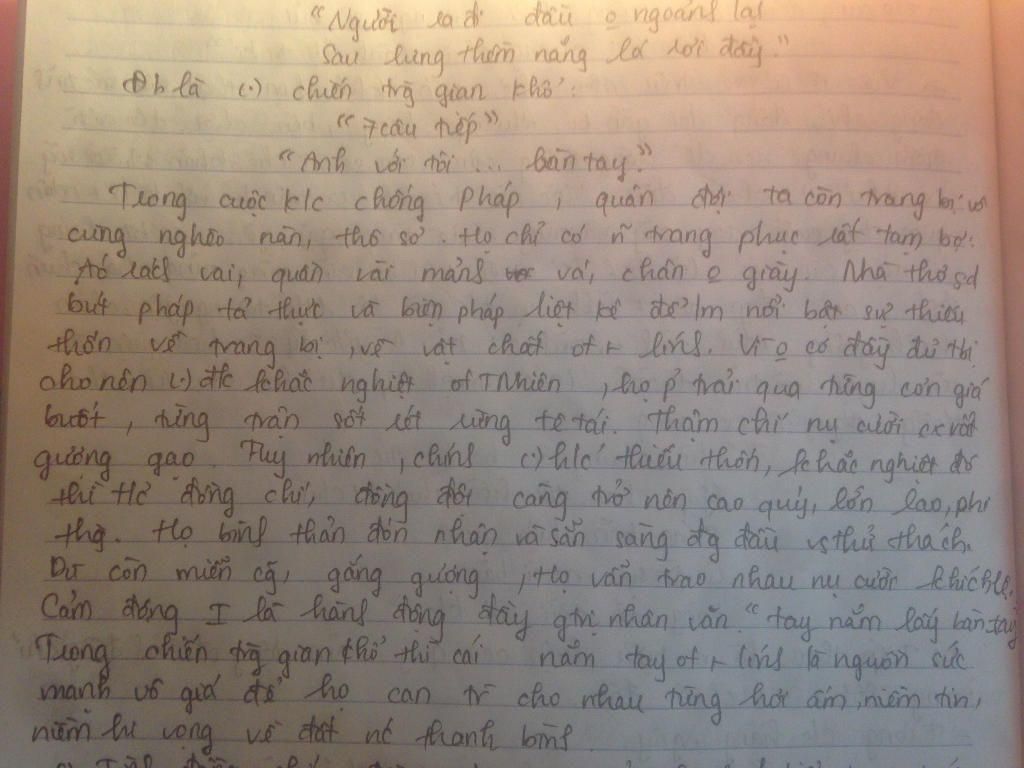 "Người ra đi đầu o ngoảnh lại
Sau lưng thềm nắng lá rơi đầy."
Đb là (.) chiến trg gian khổ:
"7 câu tiếp"
"Anh với tôi ... bàn tay."
Trong cuộc k/c chống Pháp, quân đội ta còn trang bị vô
cùng nghèo nàn, thô sơ. Họ chỉ có n~ trang phục rất tạm bợ:
Áo rách vai, quần vài mảnh vá, chân o giày. Nhà thơ sd
bút pháp tả thực và biện pháp liệt kê để lm nổi bật sự thiếu
thốn về trang bị, về vật chất of lính. Vì o có đầy đủ tbị
cho nên (.) đk khắc nghiệt of TNhiên, họ p? trải qua từng cơn giá
buốt, từng trận sốt rét rừng tê tái. Thậm chí nụ cười
gượng gạo. Tuy nhiên, chính (.) h/c thiếu thốn, khắc nghiệt đó
thì t/c đồng chí, đồng đội càng trở nên cao quý, lớn lao, phi
thg. Họ bình thản đón nhận và sẵn sàng đg đầu vs thử thách.
Dù còn miễn cg, gắng gượng, họ vẫn trao nhau nụ cười khích lệ.
Cảm động I là hành động đầy gtrị nhân văn "tay nắm lấy bàn tay
Trong chiến trg gian khổ thì cái nắm tay of lính là nguồn sức
mạnh vô giá để họ can trì cho nhau từng hơi ấm, niềm tin,
niềm hi vọng về đất nc thanh bình.